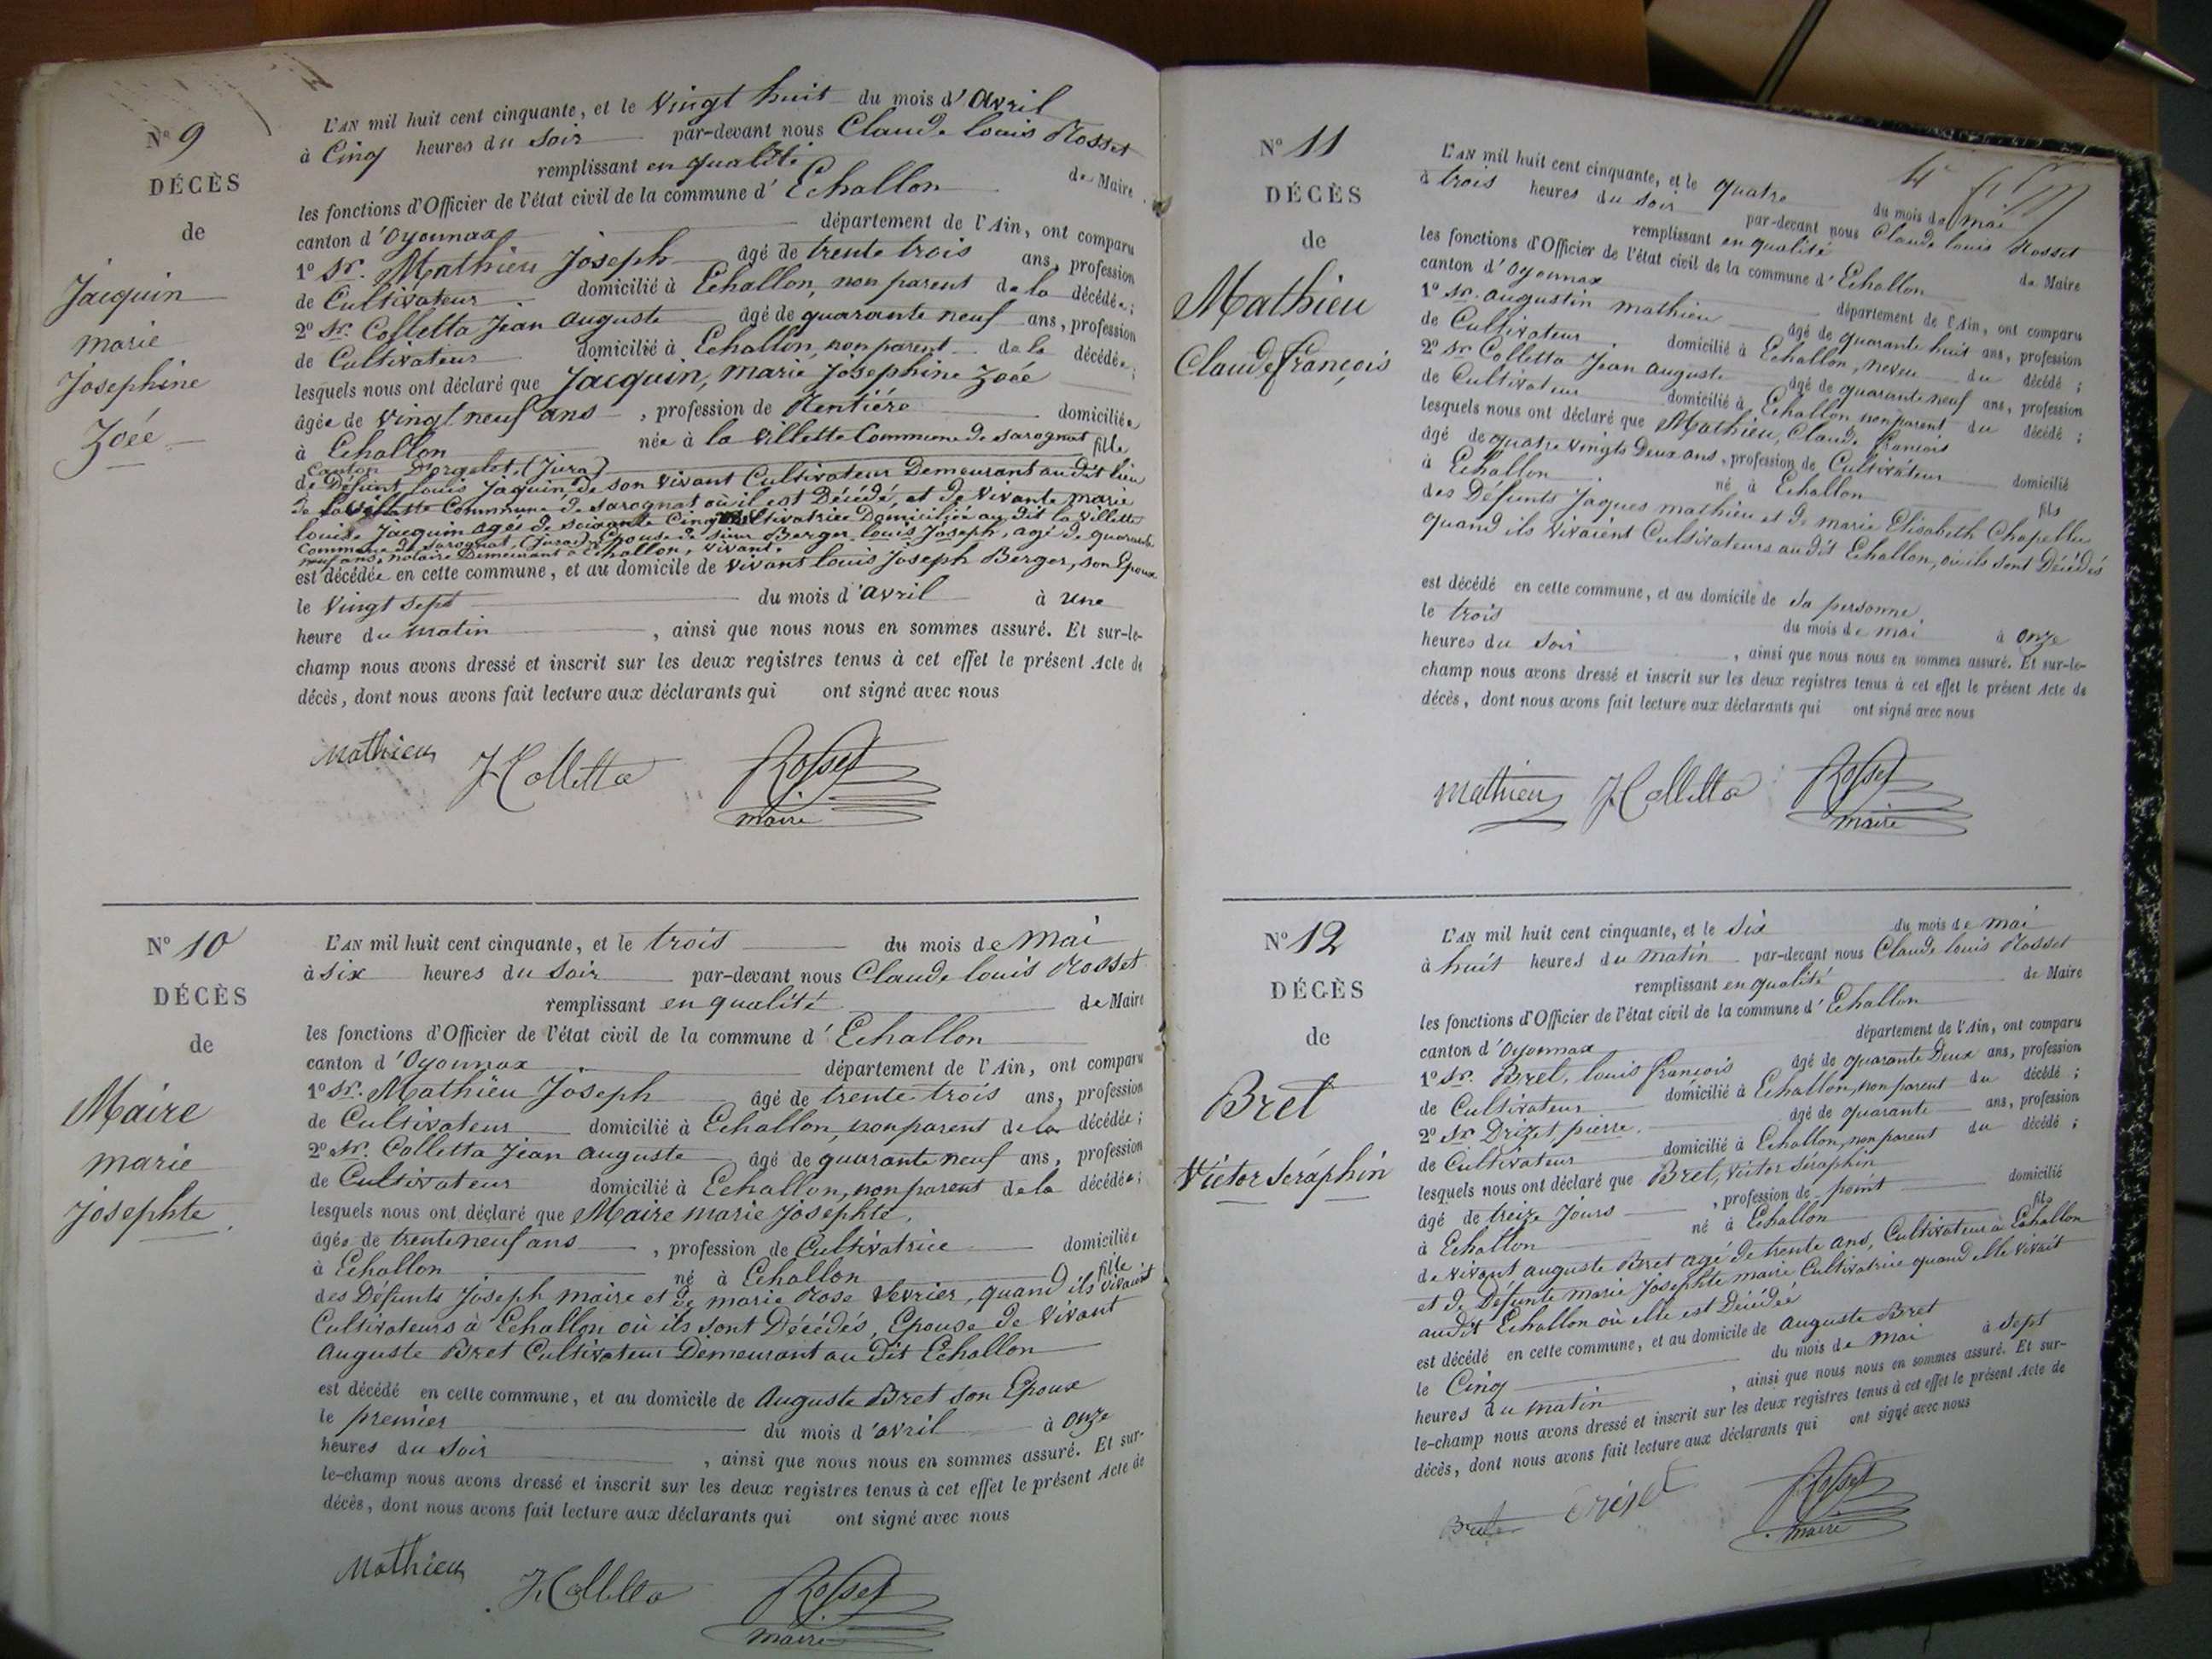 N° 9
DÉCÈS
de
Jacquin
marie
Josephine
Zoée
L'AN mil huit cent cinquante, et le Vingt huit du mois d'Avril
à Cinq heures du Soir par-devant nous Claude louis Rosset
remplissant en qualité de Maire
les fonctions d'Officier de l'état civil de la commune d'Echallon
canton d'Oyonnax département de l'Ain, ont comparu
1° Sr. Mathieu Joseph âgé de trente trois ans, profession
de Cultivateur domicilié à Echallon, non parent de la décédée;
2° Sr. Colletta Jean Auguste âgé de quarante neuf ans, profession
de Cultivateur domicilié à Echallon, non parent de la décédée;
lesquels nous ont déclaré que Jacquin, marie Josephine Zoée
âgée de vingt neuf ans, profession de Rentiére domiciliée
à Echallon née à la Villette Commune de Sarognat fille
Canton D'orgelet, (Jura)
de Défunt louis Jaquin, de son vivant Cultivateur Demeurant au dit lieu
de la Villette Commune de Sarognat où il est Décédé, et de Vivante marie
louise Jacquin agée de soixante Cinq Cultivatrice Domiciliée au dit la Villette
Commune de Sarognat, (Jura) Epouse de sieur Berger louis Joseph, agé de quarante
neuf ans, notaire Demeurant à Echallon, vivant.
est décédée en cette commune, et au domicile de vivant louis Joseph Berger, son Epoux
le Vingt sept du mois d'avril à une
heure du matin, ainsi que nous nous en sommes assuré. Et sur-le-
champ nous avons dressé et inscrit sur les deux registres tenus à cet effet le présent Acte de
décès, dont nous avons fait lecture aux déclarants qui ont signé avec nous
Mathieu JColletta Rosset
maire
N° 10
DÉCÈS
de
Maire
marie
Josephte
L'AN mil huit cent cinquante, et le trois du mois de Mai
à six heures du Soir par-devant nous Claude louis Rosset
remplissant en qualité de Maire
les fonctions d'Officier de l'état civil de la commune d'Echallon
canton d'Oyonnax département de l'Ain, ont comparu
1° Sr. Mathieu Joseph âgé de trente trois ans, profession
de Cultivateur domicilié à Echallon, non parent de la décédée;
2° Sr. Colletta Jean Auguste âgé de quarante neuf ans, profession
de Cultivateur domicilié à Echallon, non parent de la décédée;
lesquels nous ont déclaré que Maire marie Josephte,
âgée de trente neuf ans, profession de Cultivatrice domiciliée
à Echallon né à Echallon fille
des Défunts Joseph maire et de marie Rose Vevrier, quand ils vivaient
Cultivateurs à Echallon où ils sont Décédés, Epouse de Vivant
Auguste Bret Cultivateur Demeurant au Dit Echallon
est décédé en cette commune, et au domicile de Auguste Bret son Epoux
le premier du mois d'avril à onze
heures du Soir, ainsi que nous nous en sommes assuré. Et sur-
le-champ nous avons dressé et inscrit sur les deux registres tenus à cet effet le présent Acte de
décès, dont nous avons fait lecture aux déclarants qui ont signé avec nous
Mathieu JColletta Rosset
maire
N° 11
DÉCÈS
de
Mathieu
Claude françois
L'AN mil huit cent cinquante, et le quatre du mois de mai
à trois heures du soir par-devant nous Claude louis Rosset
remplissant en qualité de Maire
les fonctions d'Officier de l'état civil de la commune d'Echallon
canton d'Oyonnax département de l'Ain, ont comparu
1° Sr. augustin mathieu âgé de quarante huit ans, profession
de Cultivateur domicilié à Echallon, neveu du décédé;
2° Sr Colletta Jean auguste âgé de quarante neuf ans, profession
de Cultivateur domicilié à Echallon, non parent du décédé;
lesquels nous ont déclaré que Mathieu, Claude francois
âgé de quatre vingts Deux ans, profession de Cultivateur domicilié
à Echallon né à Echallon fils
des Défunts Jaques mathieu et de marie Elisabeth Chapellu
quand ils vivaient Cultivateurs au dit Echallon, où ils sont Décédés
est décédé en cette commune, et au domicile de Sa personne,
le trois du mois de mai à onze
heures du Soir, ainsi que nous nous en sommes assuré. Et sur-le-
champ nous avons dressé et inscrit sur les deux registres tenus à cet effet le présent Acte de
décès, dont nous avons fait lecture aux déclarants qui ont signé avec nous
Mathieu JColletta Rosset
maire
N° 12
DÉCÈS
de
Bret
Victor Séraphin
L'AN mil huit cent cinquante, et le Six du mois de mai
à huit heures du matin par-devant nous Claude louis Rosset
remplissant en qualité de Maire
les fonctions d'Officier de l'état civil de la commune d'Echallon
canton d'Oyonnax département de l'Ain, ont comparu
1° Sr. Bret, louis francois âgé de quarante Deux ans, profession
de Cultivateur domicilié à Echallon, non parent du décédé;
2° Sr Drizet pierre. âgé de quarante ans, profession
de Cultivateur domicilié à Echallon, non parent du décédé;
lesquels nous ont déclaré que Bret, victor Séraphin
âgé de treize Jours, profession de point domicilié
à Echallon né à Echallon fils
de vivant auguste Bret agé de trente ans, Cultivateur à Echallon
et de Défunte marie Josephte maire Cultivatrice quand elle vivait
audit Echallon où elle est Décédée
est décédé en cette commune, et au domicile de auguste Bret
le Cinq du mois de mai à sept
heures du matin, ainsi que nous nous en sommes assuré. Et sur-
le-champ nous avons dressé et inscrit sur les deux registres tenus à cet effet le présent Acte de
décès, dont nous avons fait lecture aux déclarants qui ont signé avec nous
Bret Drizet Rosset
maire